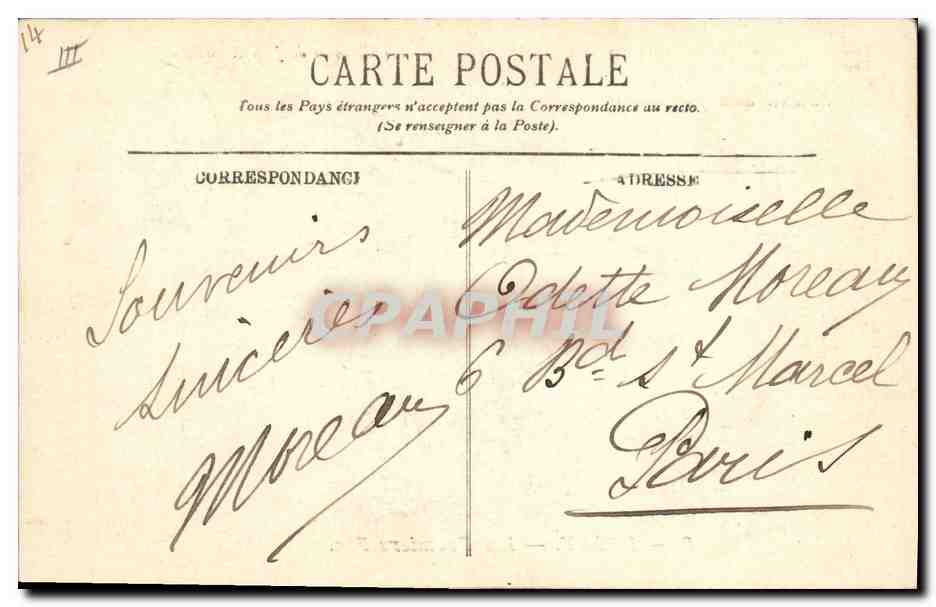 14
III
CARTE POSTALE
Tous les Pays étrangers n'acceptent pas la Correspondance au recto.
(Se renseigner à la Poste).
CORRESPONDANCE
Souvenirs
sincères
Moreau
ADRESSE
Mademoiselle
Odette Moreau
6 Bd St Marcel
Paris
CPAPHIL